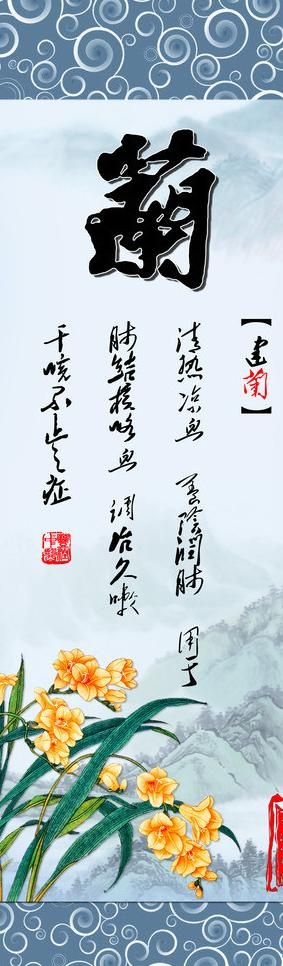 蘭
【建蘭】
清热凉血 养陰润肺 用于
肺结核咯血 调治久嗽
干咳不止之症